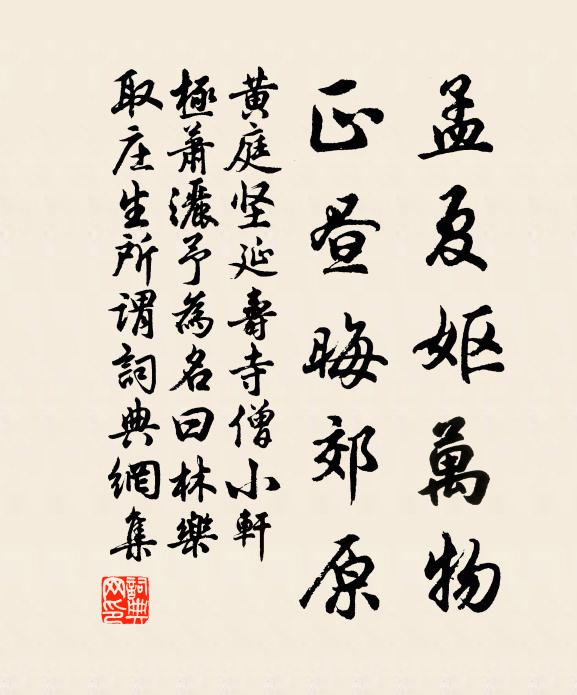 孟夏妪萬物
正昼晦郊原
黄庭坚延壽寺僧小軒
極萧灑予為名曰林樂
取庄生所謂詞典網集
詞典網印